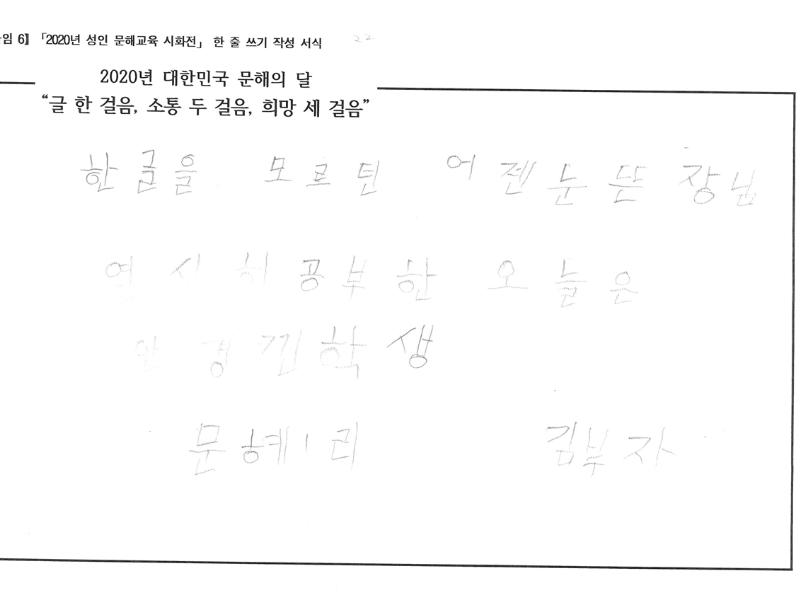 임 6】 「2020년 성인 문해교육 시화전」 한 줄 쓰기 작성 서식 22
2020년 대한민국 문해의 달
“글 한 걸음, 소통 두 걸음, 희망 세 걸음”
한글을 모르던 어젠눈뜬 장님
연시히공부한 오늘은
안경낀학생
문혜1리 김부자